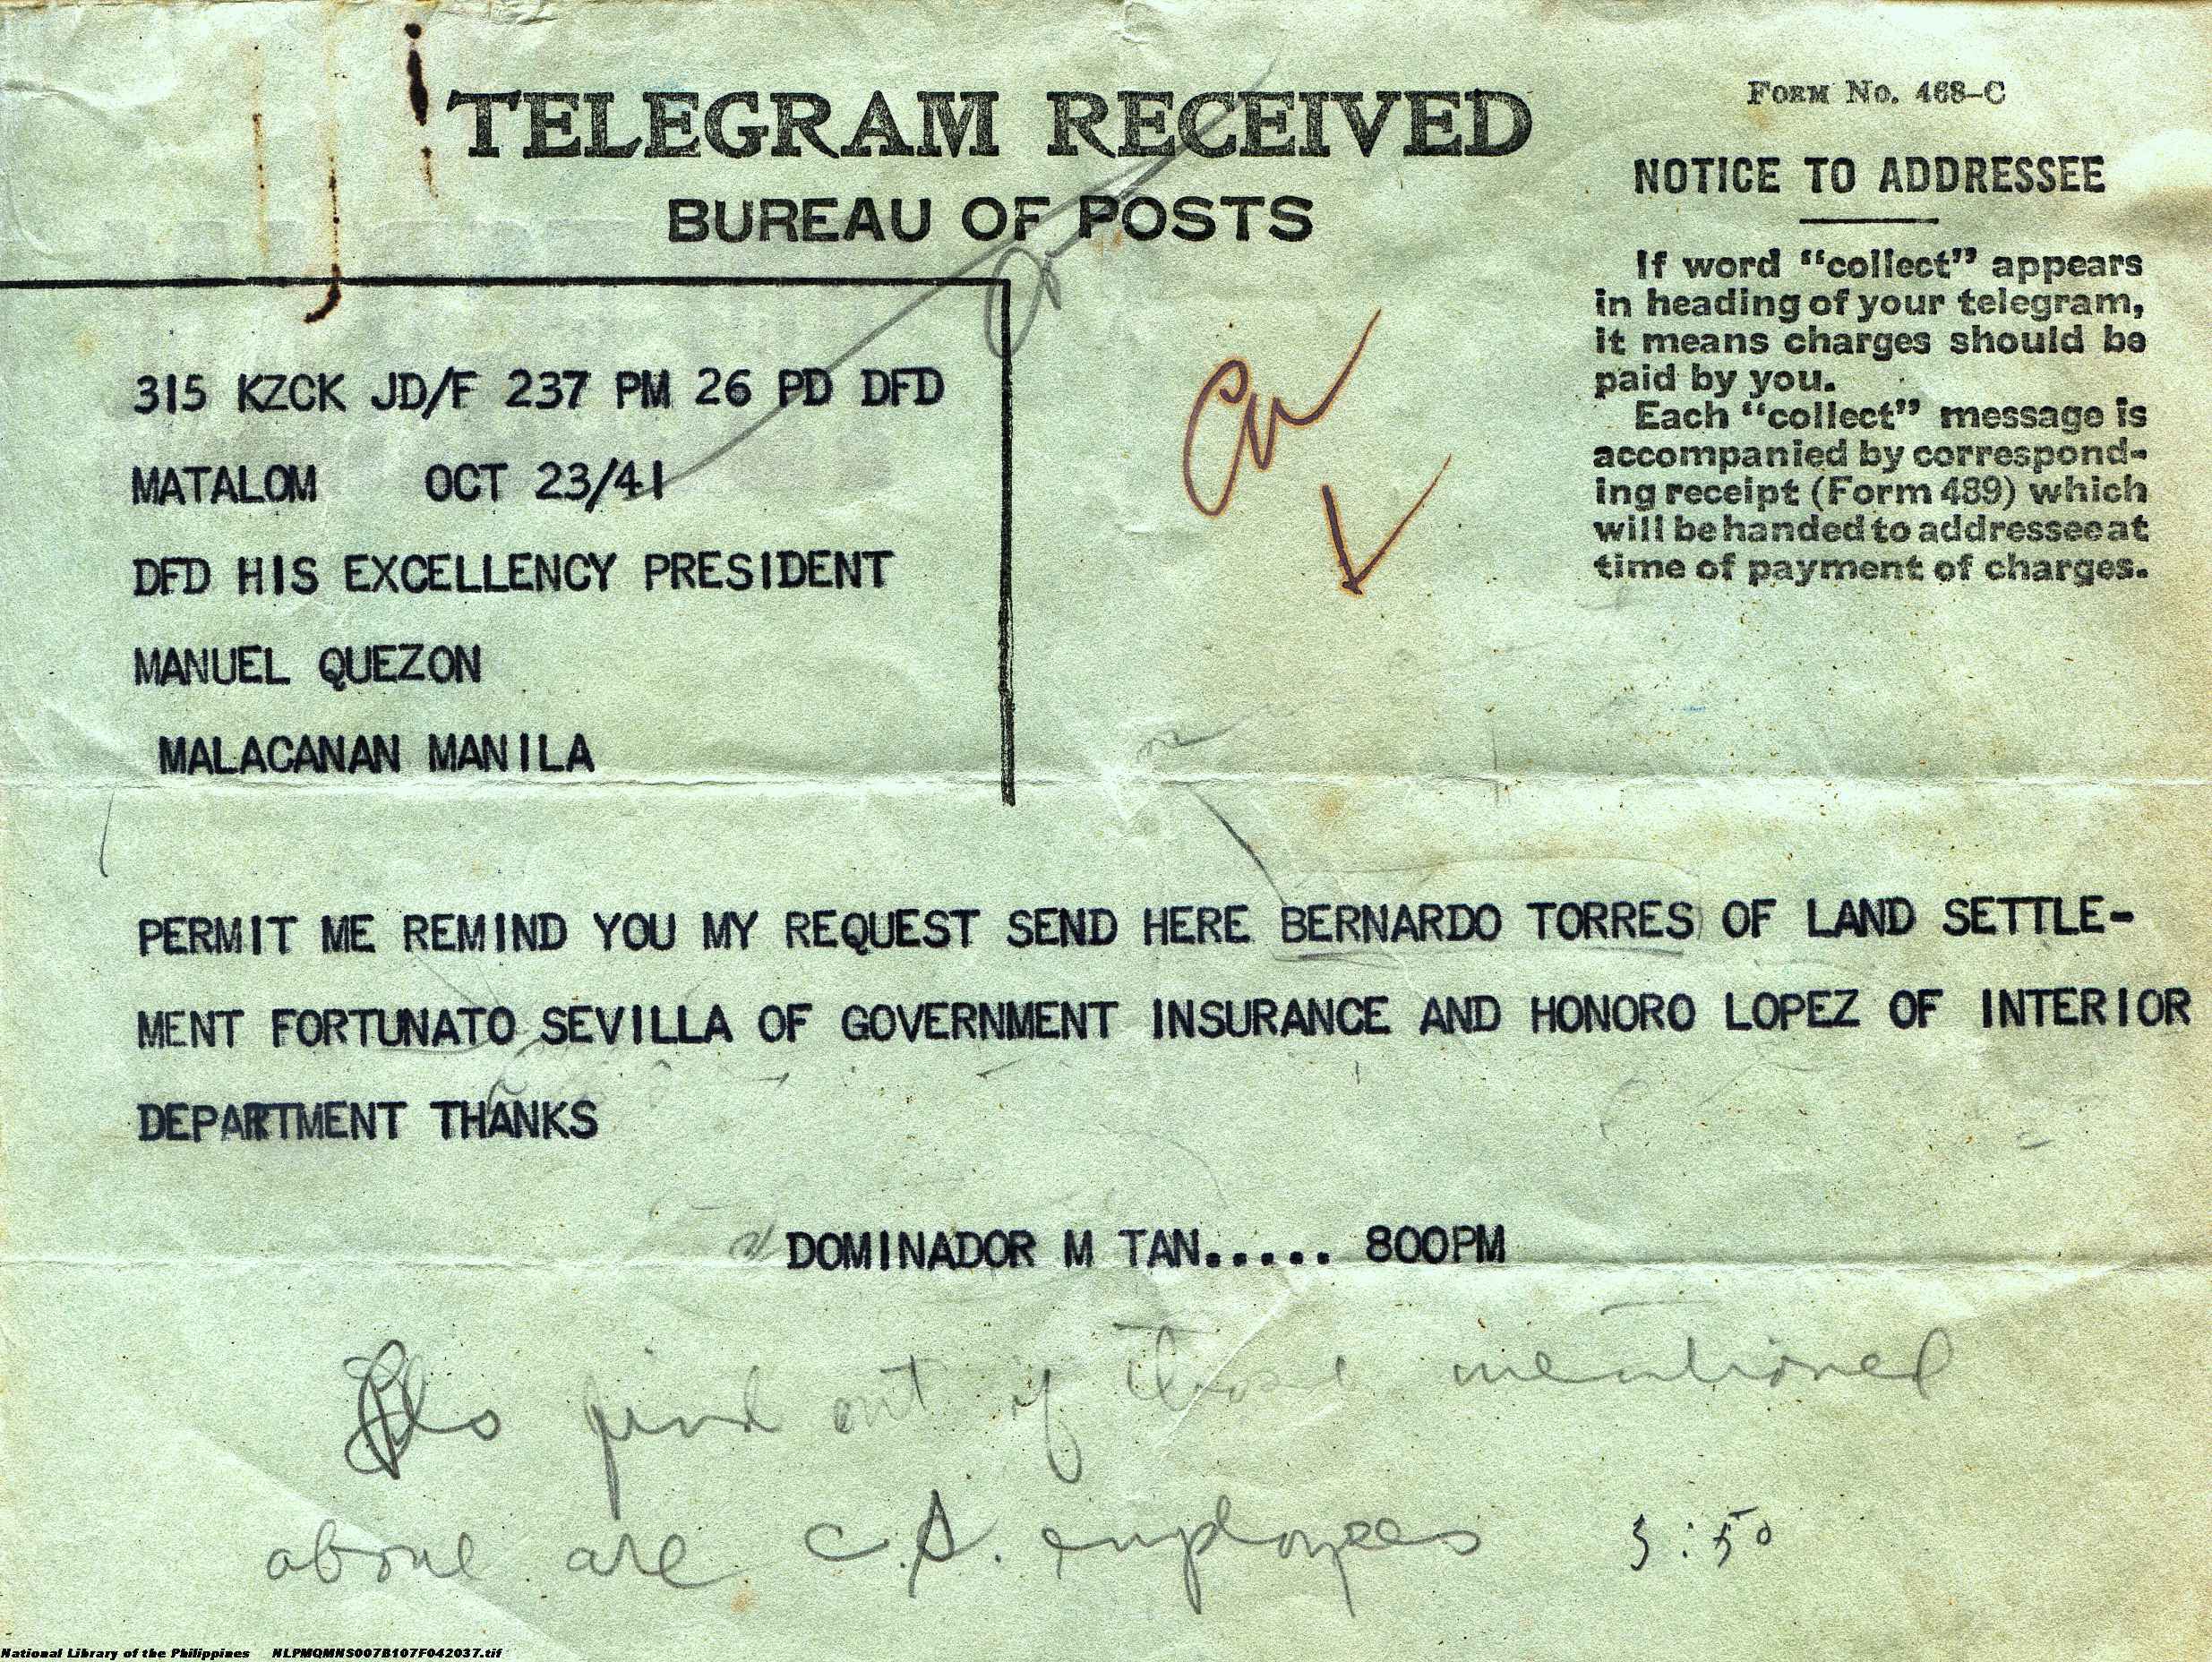 TELEGRAM RECEIVED
BUREAU OF POSTS
FORM NO. 468-C
NOTICE TO ADDRESSEE
If word "collect" appears
in heading of your telegram,
it means charges should be
paid by you.
Each "collect" message is
accompanied by correspond-
ing receipt (Form 489) which
will be handed to addressee at
time of payment of charges.
315 KZCK JD/F 237 PM 26 PD DFD
MATALOM OCT 23/41
DFD HIS EXCELLENCY PRESIDENT
MANUEL QUEZON
MALACANAN MANILA
PERMIT ME REMIND YOU MY REQUEST SEND HERE BERNARDO TORRES OF LAND SETTLE-
MENT FORTUNATO SEVILLA OF GOVERNMENT INSURANCE AND HONORO LOPEZ OF INTERIOR
DEPARTMENT THANKS
DOMINADOR M TAN..... 800PM
Pls find out if those mentioned
above are C.S. employees 3:50
National Library of the Philippines NLPMQMNS007B107F042037.tif